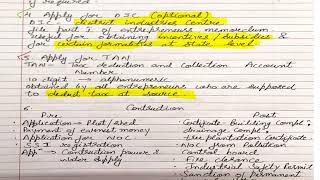 4. Apply for DIC (optional)
DIC - district industries Centre
file part I of entrepreneurs memorandum
useful for obtaining incentives / subsidies &
for certain formalities at state level.
5. Apply for TAN
TAN - Tax deduction and Collection Account
Number.
10 digit - alphanumeric
obtained by all entrepreneurs who are supposed
to deduct tax at source.
6. Construction
Pre Post
Application → Plot / shed Certificate - Building Comp
Payment of earnest money drainage Compl
Application for NOC Tree plantation Certificate
SSI registration NOC from Pollution
App → Construction power & Control board
water supply Fire clearance
Industrial Safety Permit
Sanction of permanent